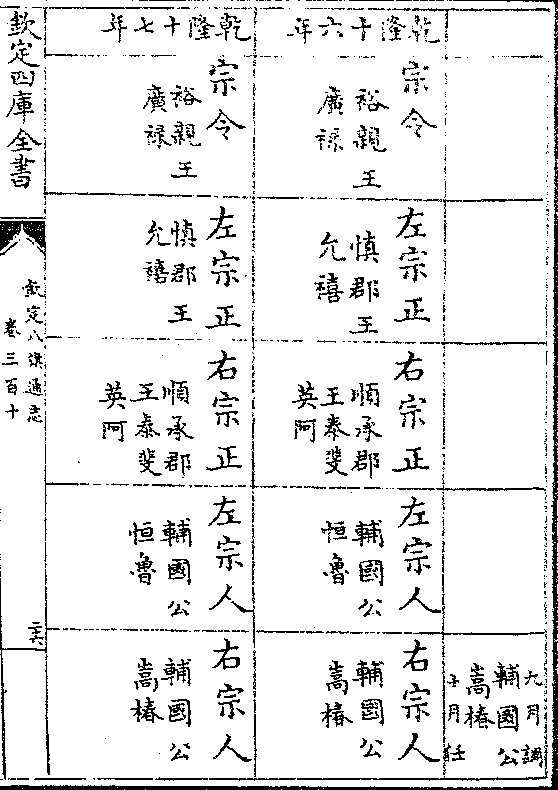 九月調
輔國公
嵩椿
十月任
乾隆十六年
宗令
裕親王
廣祿
左宗正
慎郡王
允禧
右宗正
順承郡
王泰斐
英阿
左宗人
輔國公
恒魯
右宗人
輔國公
嵩椿
乾隆十七年
宗令
裕親王
廣祿
左宗正
慎郡王
允禧
右宗正
順承郡
王泰斐
英阿
左宗人
輔國公
恒魯
右宗人
輔國公
嵩椿
欽定四庫全書
欽定八旗通志
卷三百十